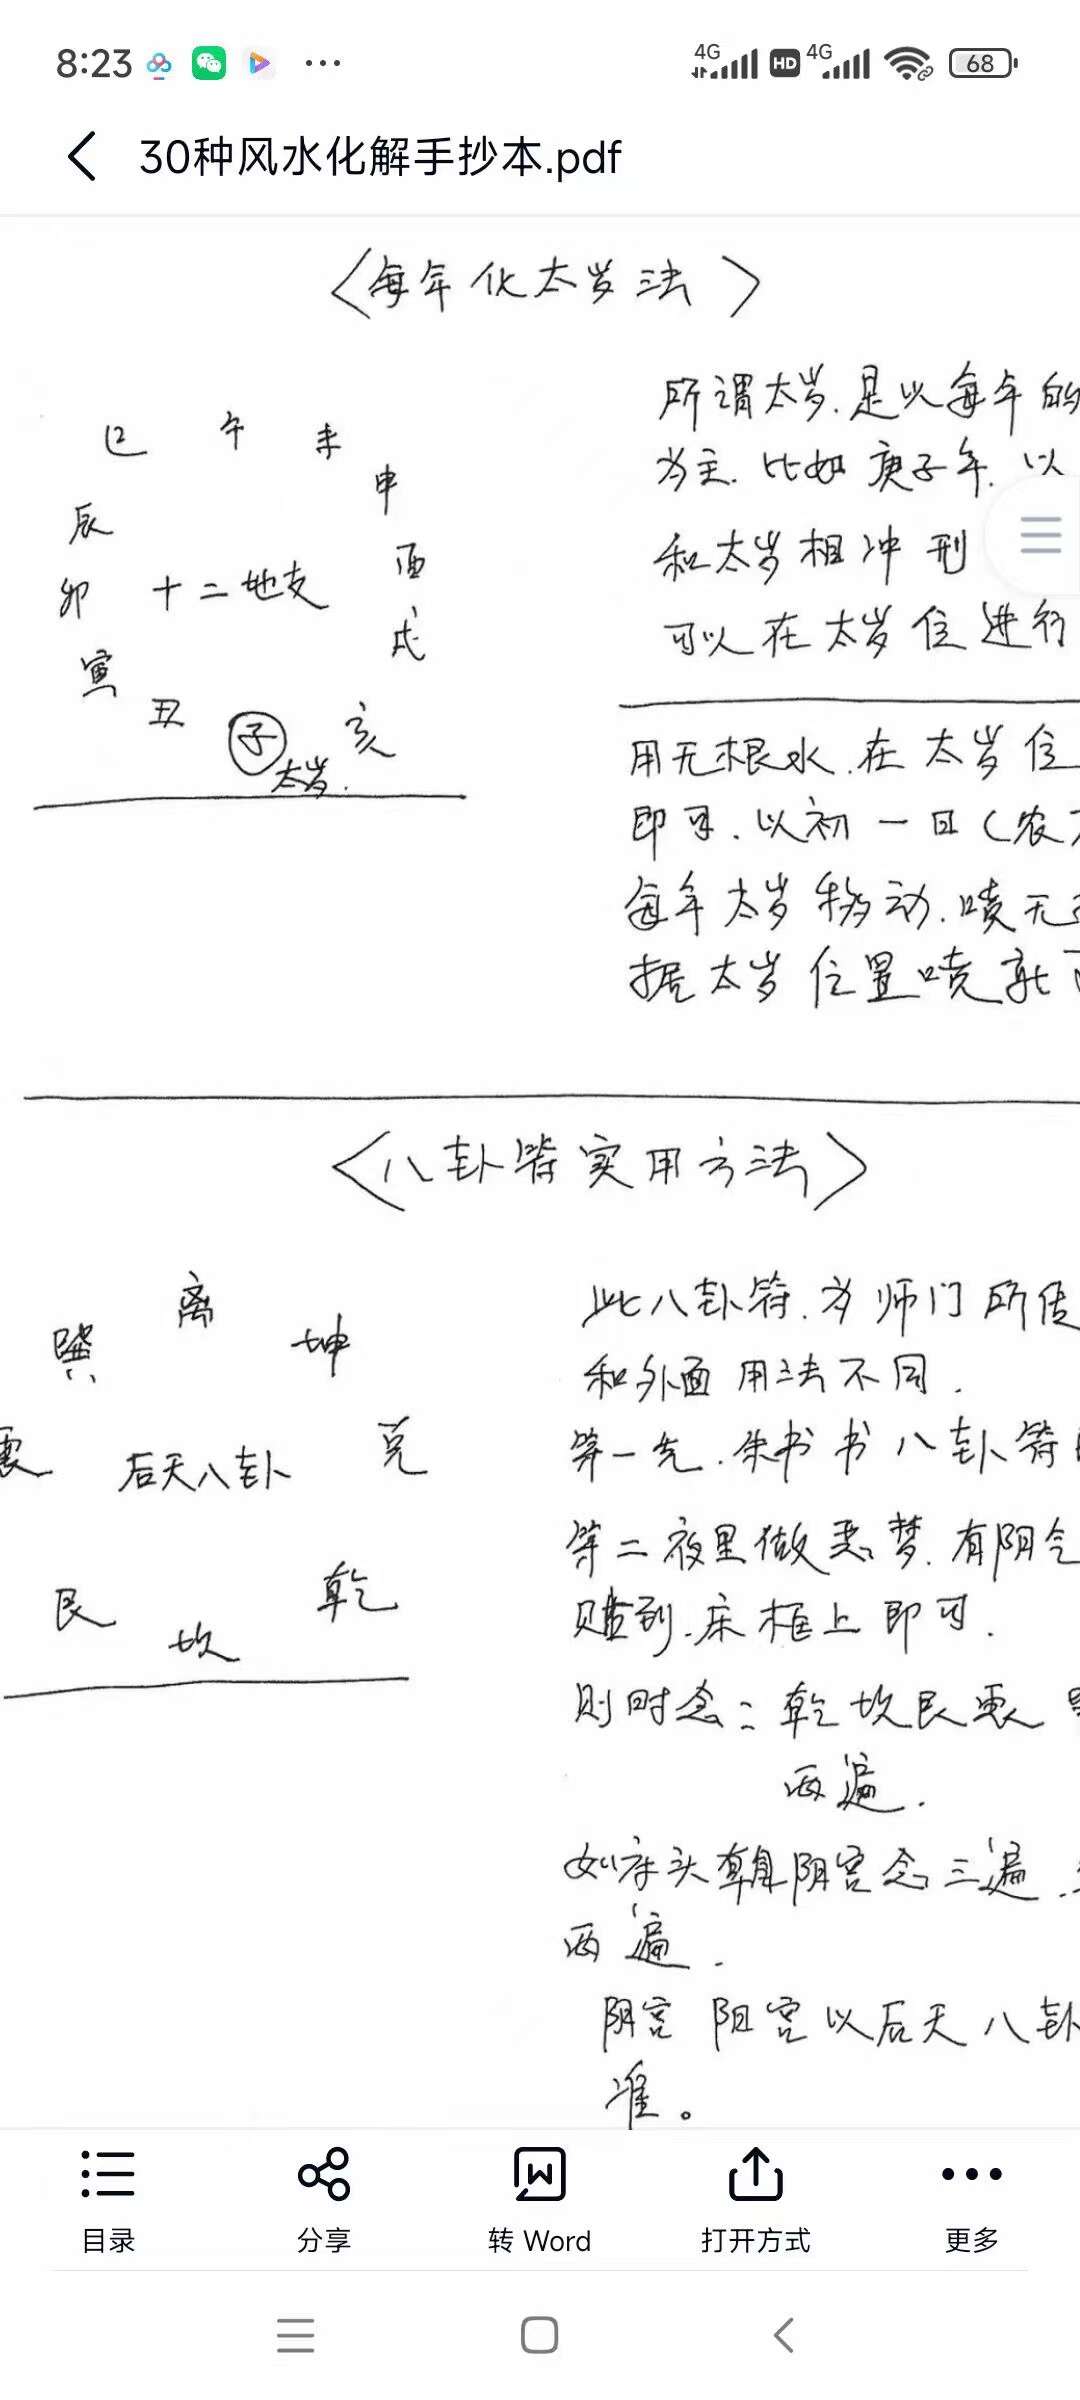 8:23
4G
HD
4G
68
30种风水化解手抄本.pdf
〈每年化太岁法〉
巳 午 未
申
辰
酉
卯 十二地支
戌
寅
丑 子 亥
太岁.
所谓太岁.是以每年的
为主.比如庚子年.以
和太岁相冲刑
可以在太岁位进行
用无根水.在太岁位
即可.以初一日(农
每年太岁移动.喷无
据太岁位置喷就
〈八卦符实用方法〉
离
巽 坤
震 后天八卦 兑
艮 乾
坎
此八卦符.为师门所传
和外面用法不同.
第一先.朱书书八卦符
第二夜里做恶梦.有阴气
贴到.床框上即可.
则时念:乾坎艮震
两遍.
如床头朝阴宫念三遍.
两遍.
阴宫 阳宫以后天八卦
准。
目录
分享
转 Word
打开方式
更多